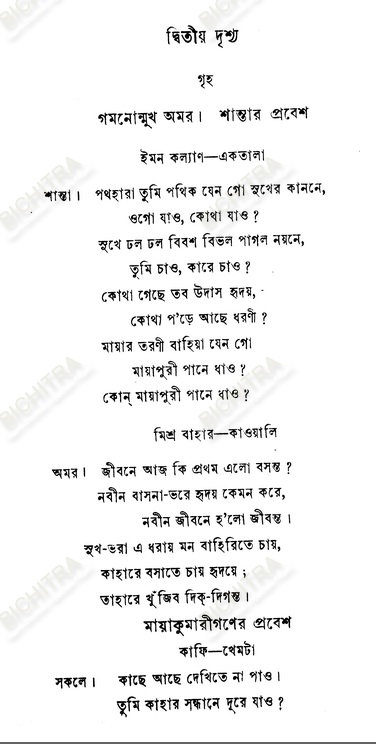 দ্বিতীয় দৃশ্য
গৃহ
গমনোন্মুখ অমর। শান্তার প্রবেশ
ইমন কল্যাণ—একতালা
শান্তা। পথহারা তুমি পথিক যেন গো সুখের কাননে,
ওগো যাও, কোথা যাও?
সুখে ঢল ঢল বিবশ বিভল পাগল নয়নে,
তুমি চাও, কারে চাও?
কোথা গেছে তব উদাস হৃদয়,
কোথা প'ড়ে আছে ধরণী?
মায়ার তরণী বাহিয়া যেন গো
মায়াপুরী পানে ধাও?
কোন্ মায়াপুরী পানে ধাও?
মিশ্র বাহার—কাওয়ালি
অমর। জীবনে আজ কি প্রথম এলো বসন্ত?
নবীন বাসনা-ভরে হৃদয় কেমন করে,
নবীন জীবনে হ'লো জীবন্ত।
সুখ-ভরা এ ধরায় মন বাহিরিতে চায়,
কাহারে বসাতে চায় হৃদয়ে;
তাহারে খুঁজিব দিক্-দিগন্ত।
মায়াকুমারীগণের প্রবেশ
কাফি—খেমটা
সকলে। কাছে আছে দেখিতে না পাও।
তুমি কাহার সন্ধানে দূরে যাও?
BICHITRA